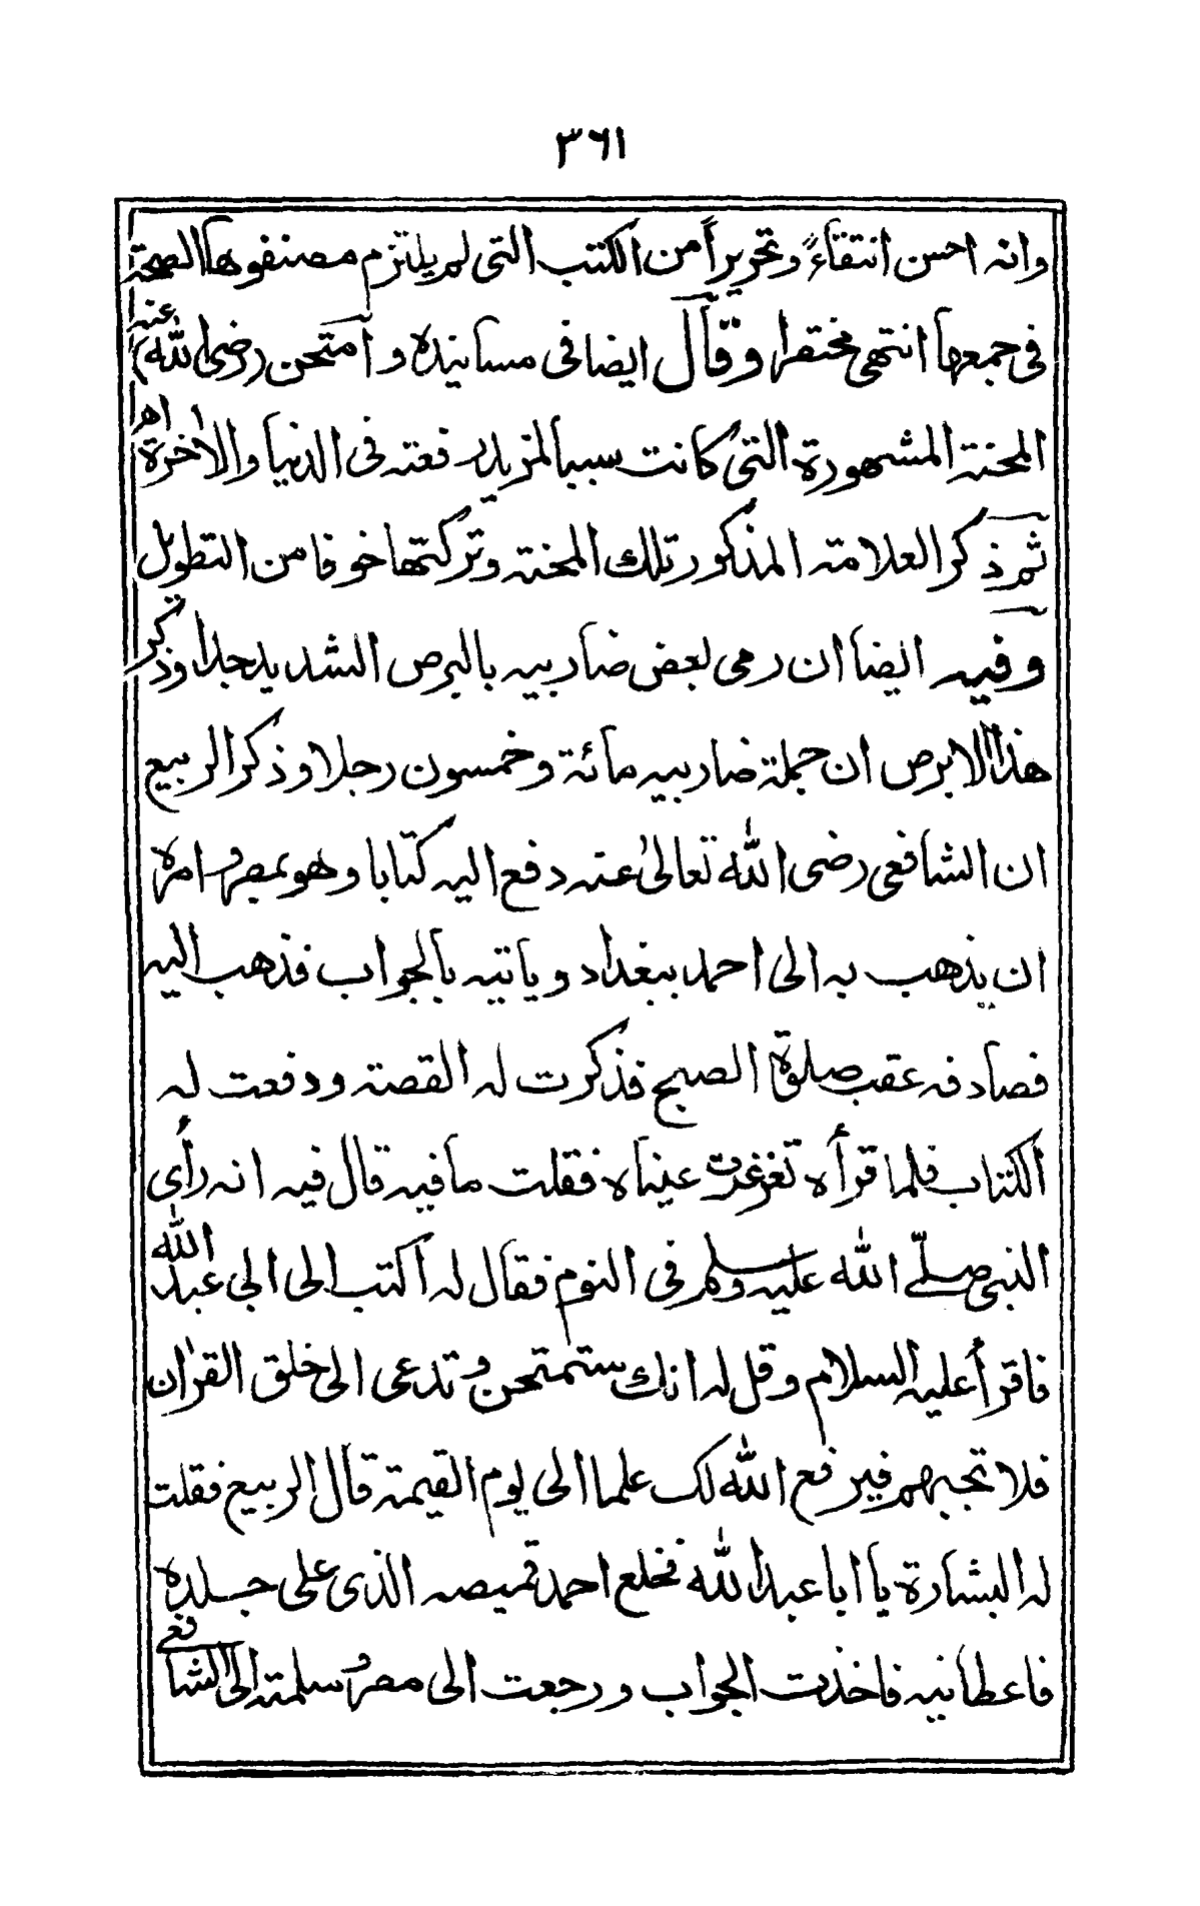 ٣٦١
وانه احسن انتقاءً وتحريراً من الكتب التى لم يلتزم مصنفوها الصحة
فى جمعها انتهى مختصرا وقال ايضا فى مسانيده وامتحن (رضى الله عنه)
المحنة المشهورة التى كانت سببا لمزيد رفعته فى الدنيا والاخرة اهـ
ثم ذكر العلامة المذكور تلك المحنة وتركتها خوفا من التطويل
وفيه ايضا ان رمى بعض ضاربيه بالبرص الشديد جدا وذكر
هذا الابرص ان جملة ضاربيه مائة وخمسون رجلا وذكر الربيع
ان الشافعى رضى الله تعالىٰ عنه دفع اليه كتابا وهو بمصر وامره
ان يذهب به الى احمد ببغداد وياتيه بالجواب فذهب اليه
فصادفه عقب صلوة الصبح فذكرت له القصة ودفعت له
الكتاب فلما قرأه تغرغرت عيناه فقلت ما فيه قال فيه انه رأى
النبى صلّے الله عليه وسلم فى النوم فقال له اكتب الى ابى عبد الله
فاقرأ عليه السلام وقل له انك ستمتحن وتدعى الى خلق القراٰن
فلا تجبهم فيرفع الله لك علما الى يوم القيمة قال الربيع فقلت
له البشارة يا ابا عبد الله فخلع احمد قميصه الذى على جسده
فاعطانيه فاخذت الجواب ورجعت الى مصر وسلمته الى الشافعى